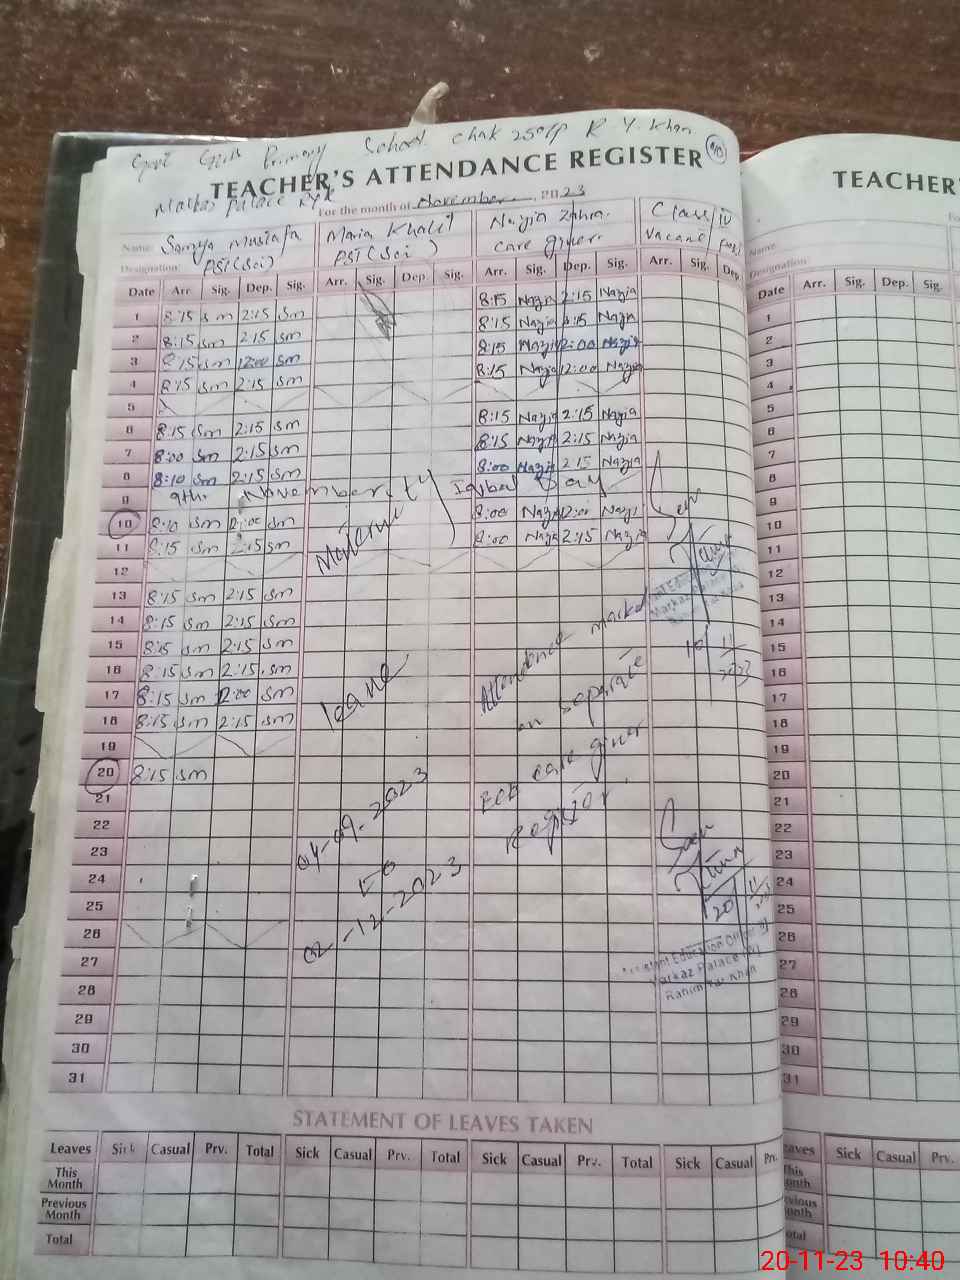 Govt Girls Primary School Chak 250/P R. Y. Khan
TEACHER'S ATTENDANCE REGISTER
Markaz Palace RYK For the month of November, 2023
Name: Samya Mustafa Maria Khalil Nazia Zahra Class IV
Designation: PST(Sci) PST(Sci) care giver Vacant
Date Arr. Sig. Dep. Sig. Arr. Sig. Dep. Sig. Arr. Sig. Dep. Sig. Arr. Sig. Dep
1 8:15 sm 2:15 sm 8:15 Nazia 2:15 Nazia
2 8:15 sm 2:15 sm 8:15 Nazia 2:15 Nazia
3 8:15 sm 12:00 sm 8:15 Nazia 12:00 Nazia
4 8:15 sm 2:15 sm 8:15 Nazia 12:00 Nazia
5
6 8:15 sm 2:15 sm 8:15 Nazia 2:15 Nazia
7 8:00 sm 2:15 sm 8:15 Nazia 2:15 Nazia
8 8:10 sm 2:15 sm 8:00 Nazia 2:15 Nazia
9 9th November Iqbal Day
10 8:10 sm 12:00 sm 8:00 Nazia 12:00 Nazia
11 8:15 sm 2:15 sm 8:00 Nazia 2:15 Nazia
12
13 8:15 sm 2:15 sm
14 8:15 sm 2:15 sm
15 8:15 sm 2:15 sm
16 8:15 sm 2:15 sm
17 8:15 sm 12:00 sm
18 8:15 sm 2:15 sm
19
20 8:15 sm
21
22
23
24
25
26
27
28
29
30
31
Maternity
leave
04-09-2023
to
02-12-2023
Attendence marked
on separate
ECE care giver
Register.
Seen
10 11 2023
Seen
20 11
Assistant Education Officer
Markaz Palace
Rahim Yar Khan
STATEMENT OF LEAVES TAKEN
Leaves Sick Casual Prv. Total Sick Casual Prv. Total Sick Casual Prv. Total Sick Casual Prv.
This Month
Previous Month
Total
TEACHER'
Name:
Designation:
Date Arr. Sig. Dep. Sig.
1
2
3
4
5
6
7
8
9
10
11
12
13
14
15
16
17
18
19
20
21
22
23
24
25
26
27
28
29
30
31
Sick Casual Prv.
20-11-23 10:40